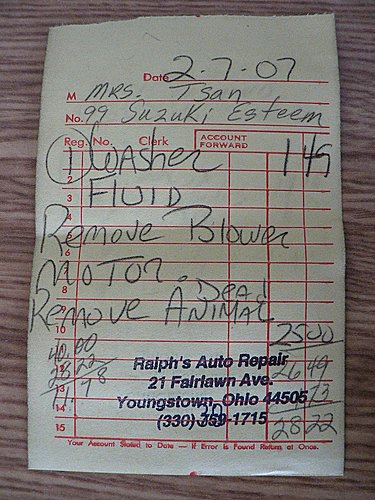 Date 2-7-07
M MRS. Tsan
No. 99 SUZUKi Esteem
Reg. No. Clerk ACCOUNT FORWARD
1 WASHER 1 49
2 FLUID
3
4
Remove Blower
6
7 MOTOR.
8 Dead
Remove ANIMAL
10 25 00
40.00 26 49
28.22 1 73
11.78 28 22
12
13
14
15
Ralph's Auto Repair
21 Fairlawn Ave.
Youngstown, Ohio 44505
(330) 759-1715
Your Account Stated to Date — If Error is Found Return at Once.